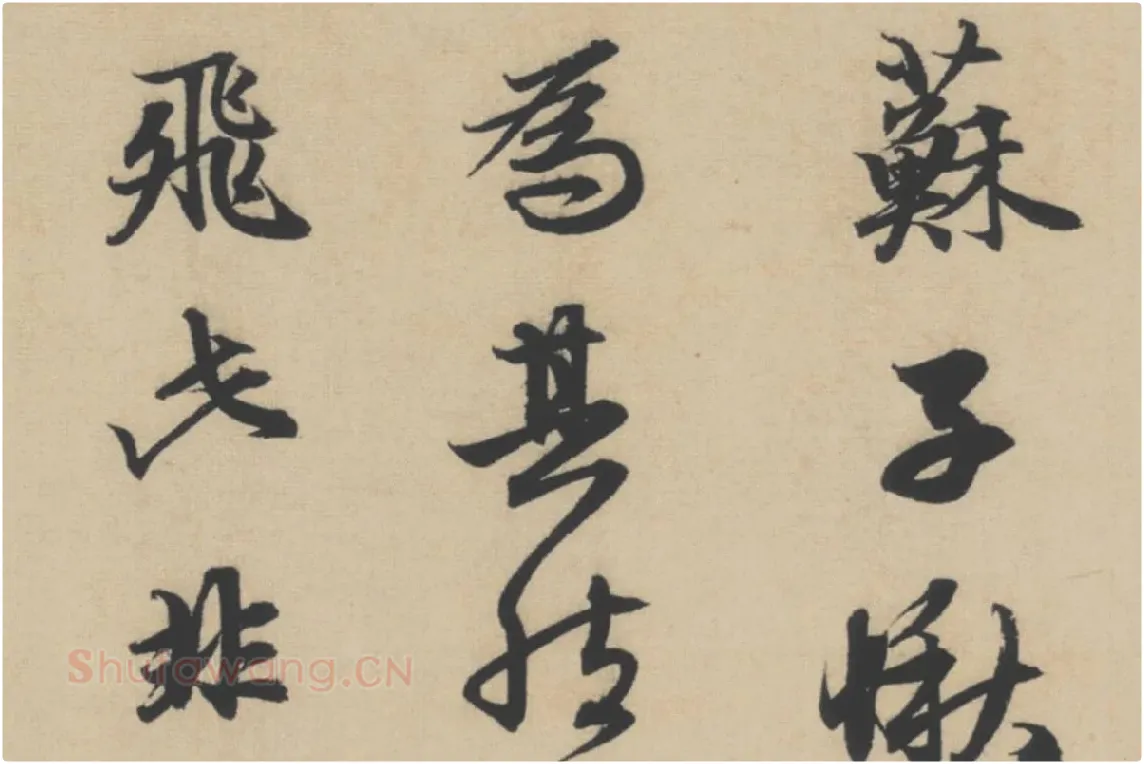 蘇子愀
為其然
飛此非
Shufawang.CN